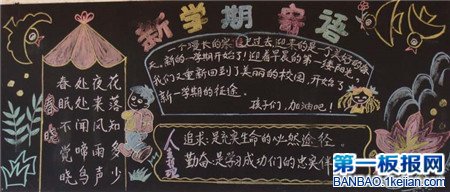 新学期寄语
一个漫长的寒假已过去,迎来的是一个美好的春
天。新的一学期开始了!迎着早晨的第一缕阳光,
我们又重新回到了美丽的校园,开始了
新一学期的征途。
孩子们,加油吧!
春晓
春眠不觉晓
处处闻啼鸟
夜来风雨声
花落知多少
人生
追求:是充实生命的必然途径
勤奋:是学习成功们的忠实伴
第一板报网
BANBAO.1kejian.com